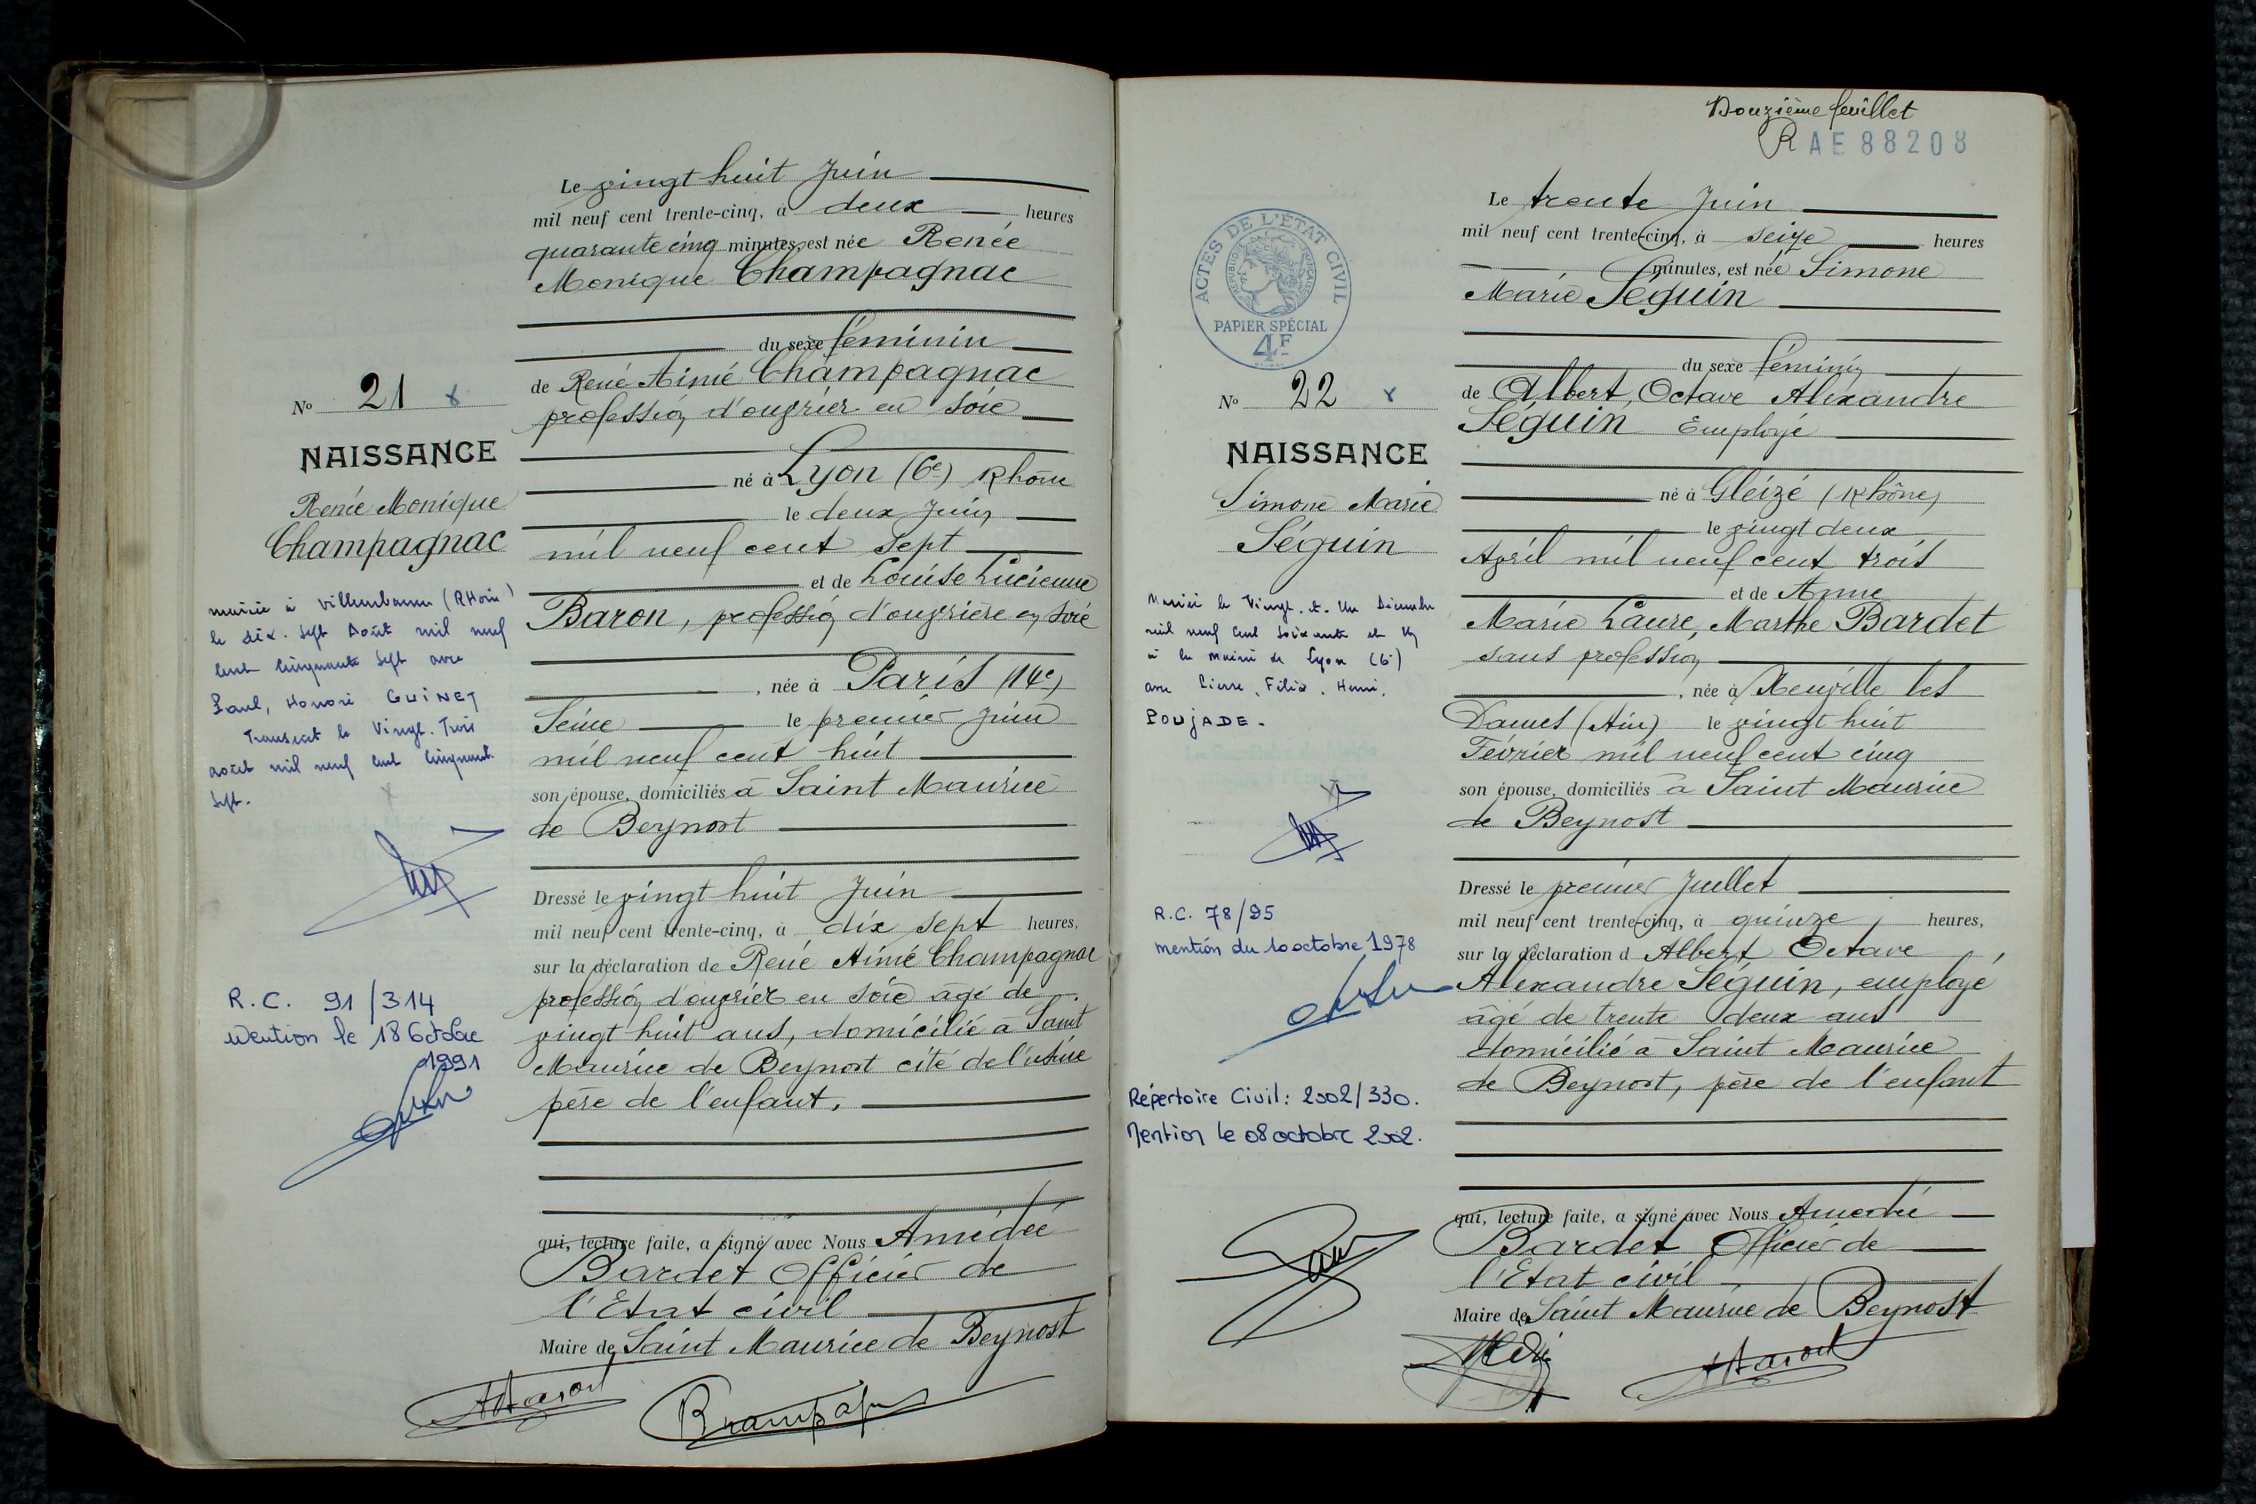 Le vingt huit Juin
mil neuf cent trente-cinq, à deux heures
quarante cinq minutes, est née Renée
Monique Champagnac
du sexe féminin
de René Aimé Champagnac
profession d'ouvrier en soie
né à Lyon (6e) Rhône
le deux Juin
mil neuf cent sept
et de Louise Lucienne
Baron, profession d'ouvrière en soie
, née à Paris (14e)
Seine le premier Juin
mil neuf cent huit
son épouse, domiciliés à Saint Maurice
de Beynost
Dressé le vingt huit Juin
mil neuf cent trente-cinq, à dix sept heures,
sur la déclaration de René Aimé Champagnac
profession d'ouvrier en soie âgé de
vingt huit ans, domicilié à Saint
Maurice de Beynost cité de l'usine
père de l'enfant.
qui, lecture faite, a signé avec Nous Amédée
Bardet Officier de
l'Etat civil
Maire de Saint Maurice de Beynost
No 21
NAISSANCE
Renée Monique
Champagnac
mariée à Villeurbanne (Rhône)
le dix. sept Août mil neuf
cent cinquante sept avec
Paul, Honoré GUINET
Transcrit le Vingt. Trois
août mil neuf cent cinquante
sept.
R.C. 91/314
Mention le 18 Octobre
1991
Douzième feuillet
R AE 88208
ACTES DE L'ÉTAT CIVIL
RÉPUBLIQUE FRANÇAISE
PAPIER SPÉCIAL
4F
No 22
NAISSANCE
Simone Marie
Séguin
Mariée le Vingt. et. Un Décembre
mil neuf cent soixante et un
à la mairie de Lyon (6e)
avec Pierre, Félix, Henri,
POUJADE.
R.C. 78/95
mention du 10 octobre 1978
Répertoire Civil: 2002/330.
Mention le 08 octobre 2002.
Le trente Juin
mil neuf cent trente-cinq, à seize heures
minutes, est née Simone
Marie Séguin
du sexe féminin
de Albert, Octave Alexandre
Séguin Employé
né à Gleizé (Rhône)
le vingt deux
Avril mil neuf cent trois
et de Anne
Marie Laure, Marthe Bardet
sans profession
, née à Neuville les
Dames (Ain) le vingt huit
Février mil neuf cent cinq
son épouse, domiciliés à Saint Maurice
de Beynost
Dressé le premier Juillet
mil neuf cent trente-cinq, à quinze heures,
sur la déclaration d Albert Octave
Alexandre Séguin, employé
âgé de trente deux ans
domicilié à Saint Maurice
de Beynost, père de l'enfant
qui, lecture faite, a signé avec Nous Amédée
Bardet Officier de
l'Etat civil
Maire de Saint Maurice de Beynost